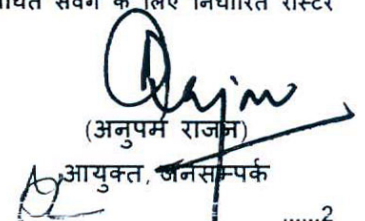 संवर्ग के लिए निर्धारित रोस्टर
(अनुपम राजन)
आयुक्त, जनसम्पर्क
......2